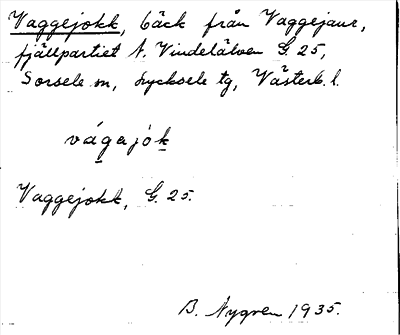 Vaggejokk, bäck från Vaggejaur,
fjällpartiet N. Vindelälven G. 25,
Sorsele sn, Lycksele tg, Västerb. l.
vágajók
Vaggejokk, G. 25.
B. Nygren 1935.